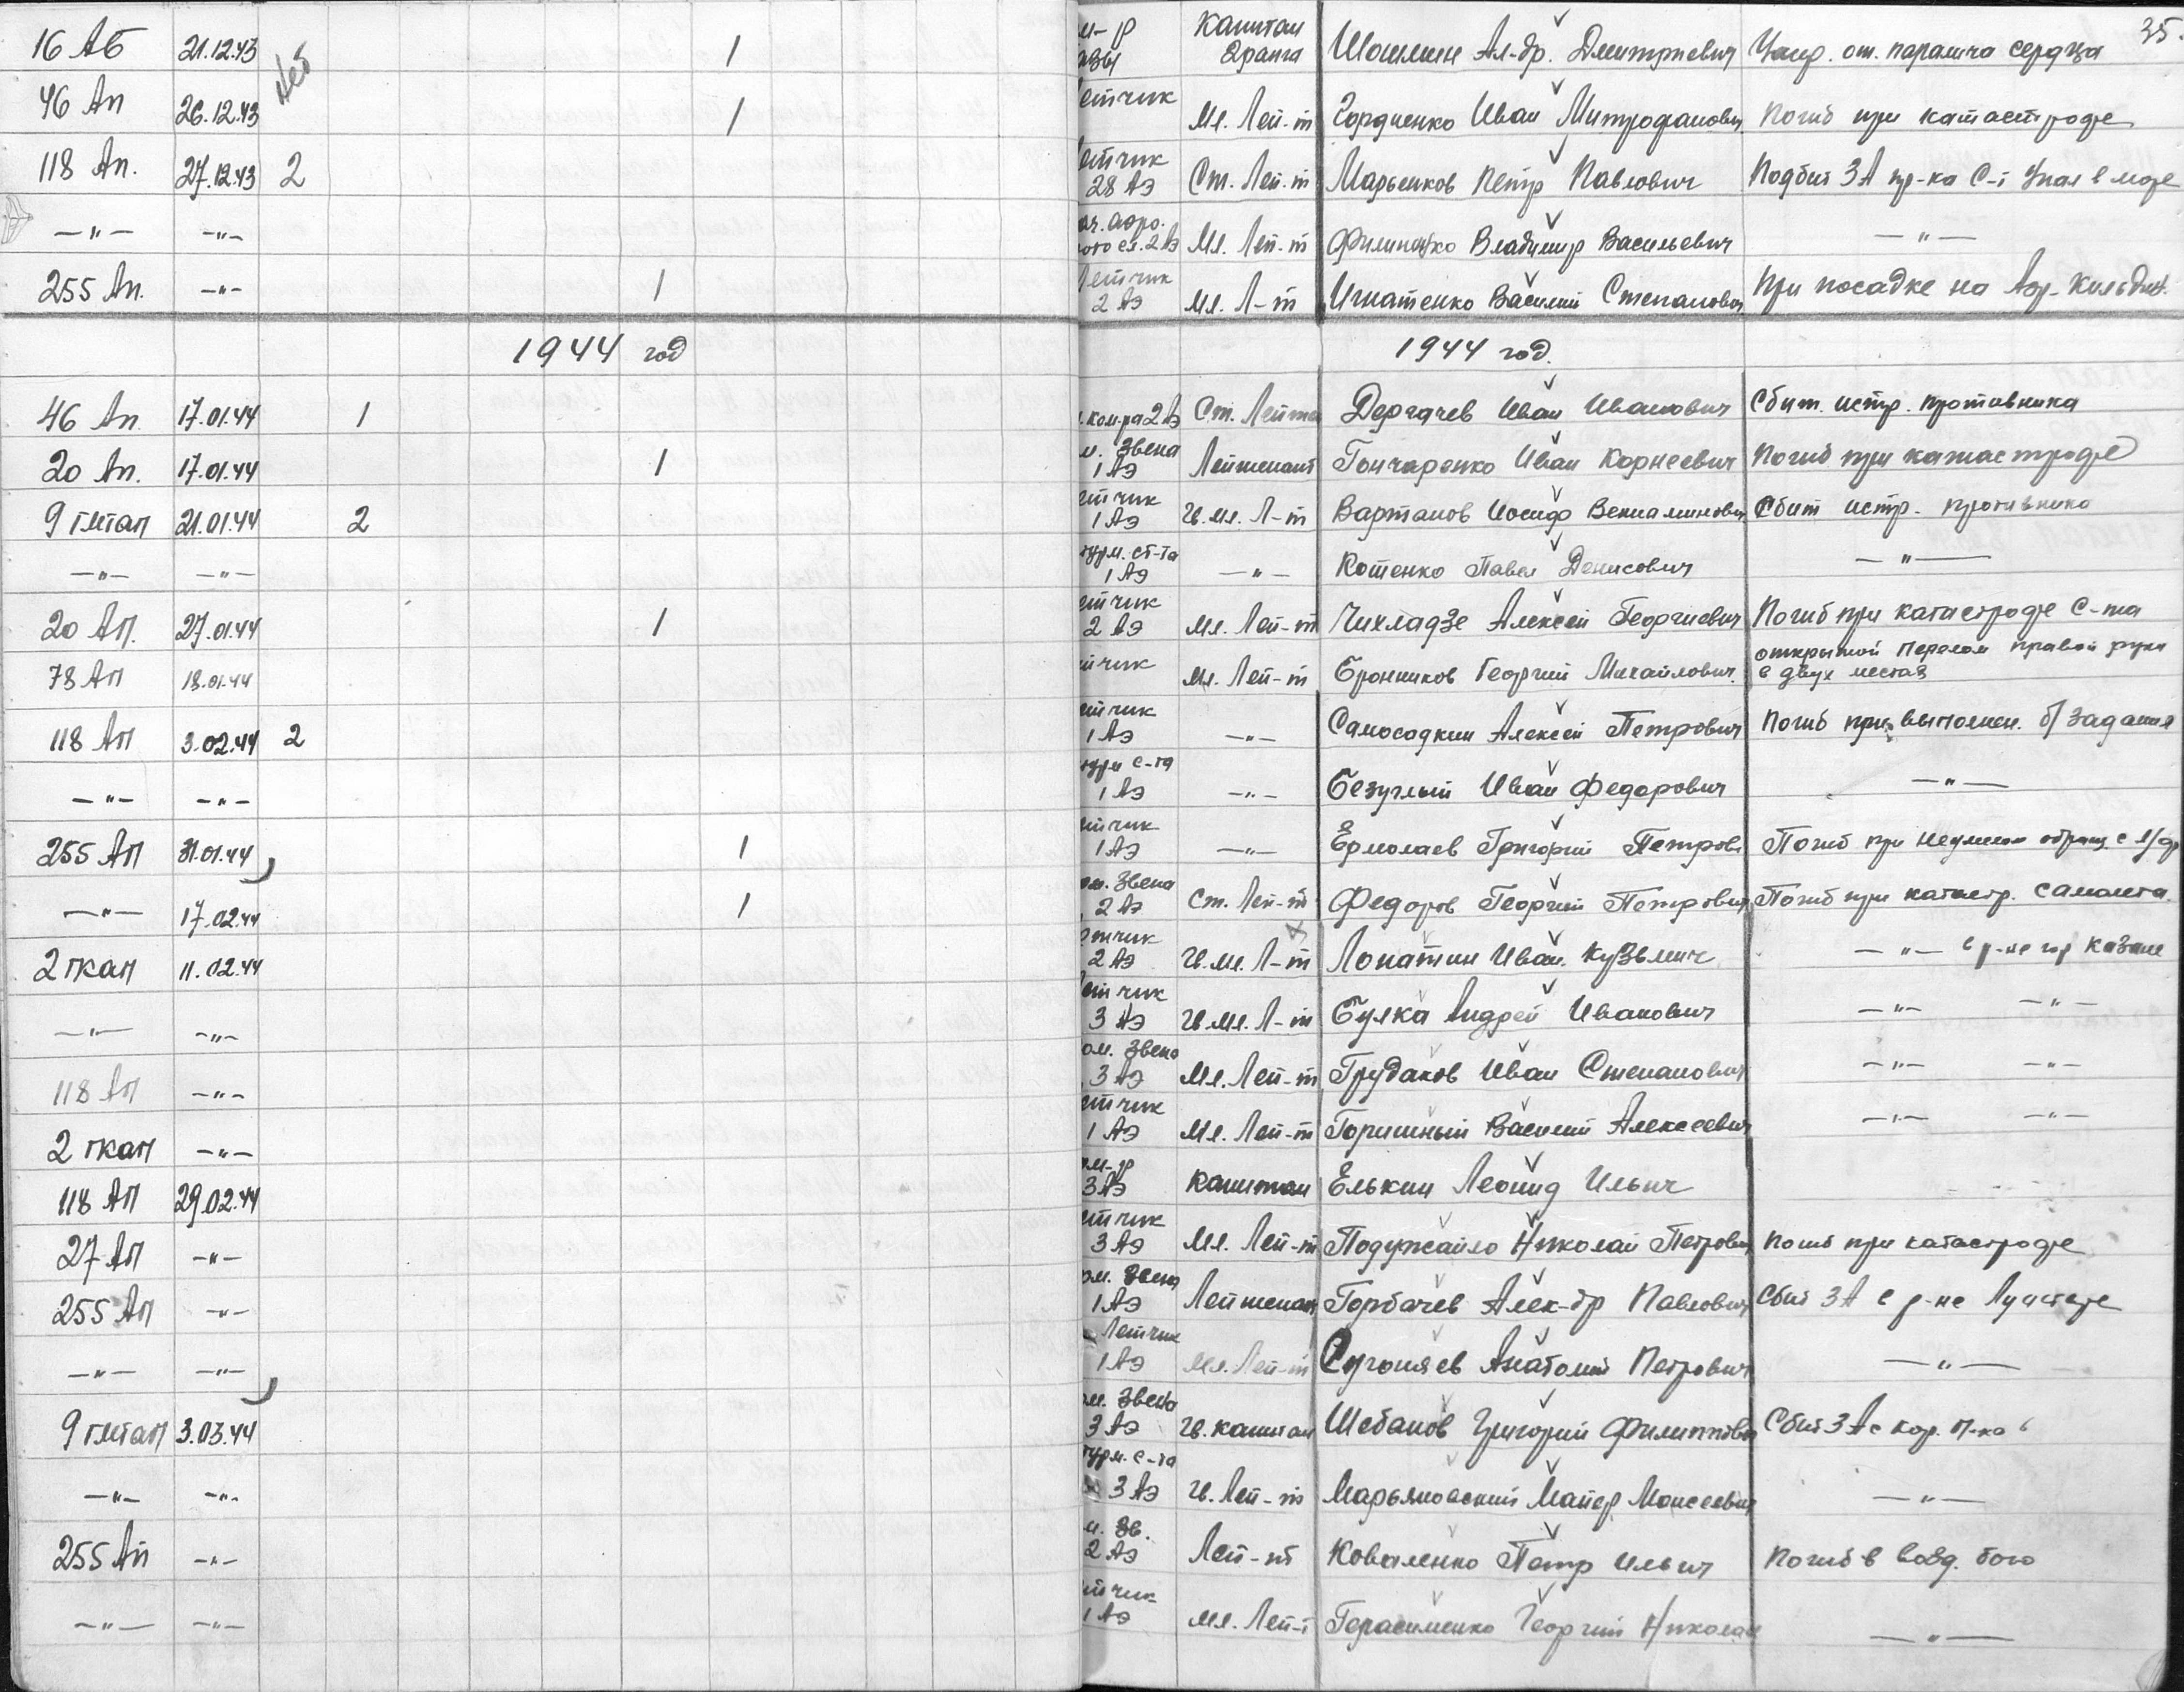 35.
16 АБ 21.12.43 1 Капитан 2 ранга Ал-др. Дмитриевич от. паралича сердца
Неб
46 Ап 26.12.43 1 Мл. Лей-т Гордиенко Иван Митрофанович Погиб при катастрофе
118 Ап. 27.12.43 2 28 Аэ Ст. Лей-т Марьенков Петр Павлович Подбит ЗА пр-ка С-т Упал в море
—"— —"— Мл. Лей-т Владимир Васильевич —"—
255 Ап. —"— 1 Летчик 2 Аэ Мл. Л-т Игнатенко Василий Степанович При посадке на Аэр-
1944 год 1944 год.
46 Ап. 17.01.44 1 Ст. Дергачев Иван Иванович Сбит. истр. противника
20 Ап. 17.01.44 1 Звена 1 Аэ Лейтенант Гончаренко Иван Корнеевич Погиб при катастрофе
9 гмтап 21.01.44 2 1 Аэ Гв. Мл. Л-т Вартанов Иосиф Вениаминович Сбит истр. противника
—"— —"— 1 Аэ —"— Котенко Павел Денисович —"—
20 Ап. 27.01.44 1 2 Аэ Мл. Лей-т Чихладзе Алексей Георгиевич Погиб при катастрофе С-та
78 Ап 18.01.44 Мл. Лей-т Бронников Георгий Михайлович. открытой перелом правой руки
в двух местах
118 Ап 3.02.44 2 1 Аэ —"— Самосадкин Алексей Петрович Погиб при выполнен. б/задания
—"— —"— 1 Аэ —"— Безуглый Иван Федорович —"—
255 Ап 31.01.44 1 1 Аэ —"— Ермолаев Григорий Петров Погиб при
—"— 17.02.44 1 Звена 2 Аэ Ст. Лей-т Федоров Георгий Петрович Погиб при катастр. самолета.
2 гкап 11.02.44 2 Аэ Гв. Мл. Л-т Лопатин Иван Кузьмич —"— в р-не гор Казани
—"— —"— 3 Аэ Гв. Мл. Л-т Булка Андрей Иванович —"— —"—
118 Ап —"— Звена 3 Аэ Мл. Лей-т Грудаков Иван Степанович —"— —"—
2 гкап —"— 1 Аэ Мл. Лей-т Горишный Василий Алексеевич —"— —"—
118 Ап 29.02.44 3 Аэ Капитан Елькин Леонид Ильич
27 Ап —"— 3 Аэ Мл. Лей-т Подужайло Николай Петрович Погиб при катастрофе
255 Ап —"— Звена 1 Аэ Лейтенант Горбачев Алек-др Павлович Сбит ЗА в р-не
—"— —"— Летчик 1 Аэ Мл. Лей-т Сугоняев Анатолий Петрович —"—
9 гмтап 3.03.44 Звена 3 Аэ Гв. капитан Шебанов Григорий Филиппович Сбит ЗА с кор. п-ка
—"— —"— 3 Аэ Гв. Лей-т Марьяновский Майер Моисеевич —"—
255 Ап —"— Зв. 2 Аэ Лей-нт Коваленко Петр Ильич Погиб в возд. бою
—"— —"— 1 Аэ Мл. Лей-т Герасименко Георгий Николае —"—